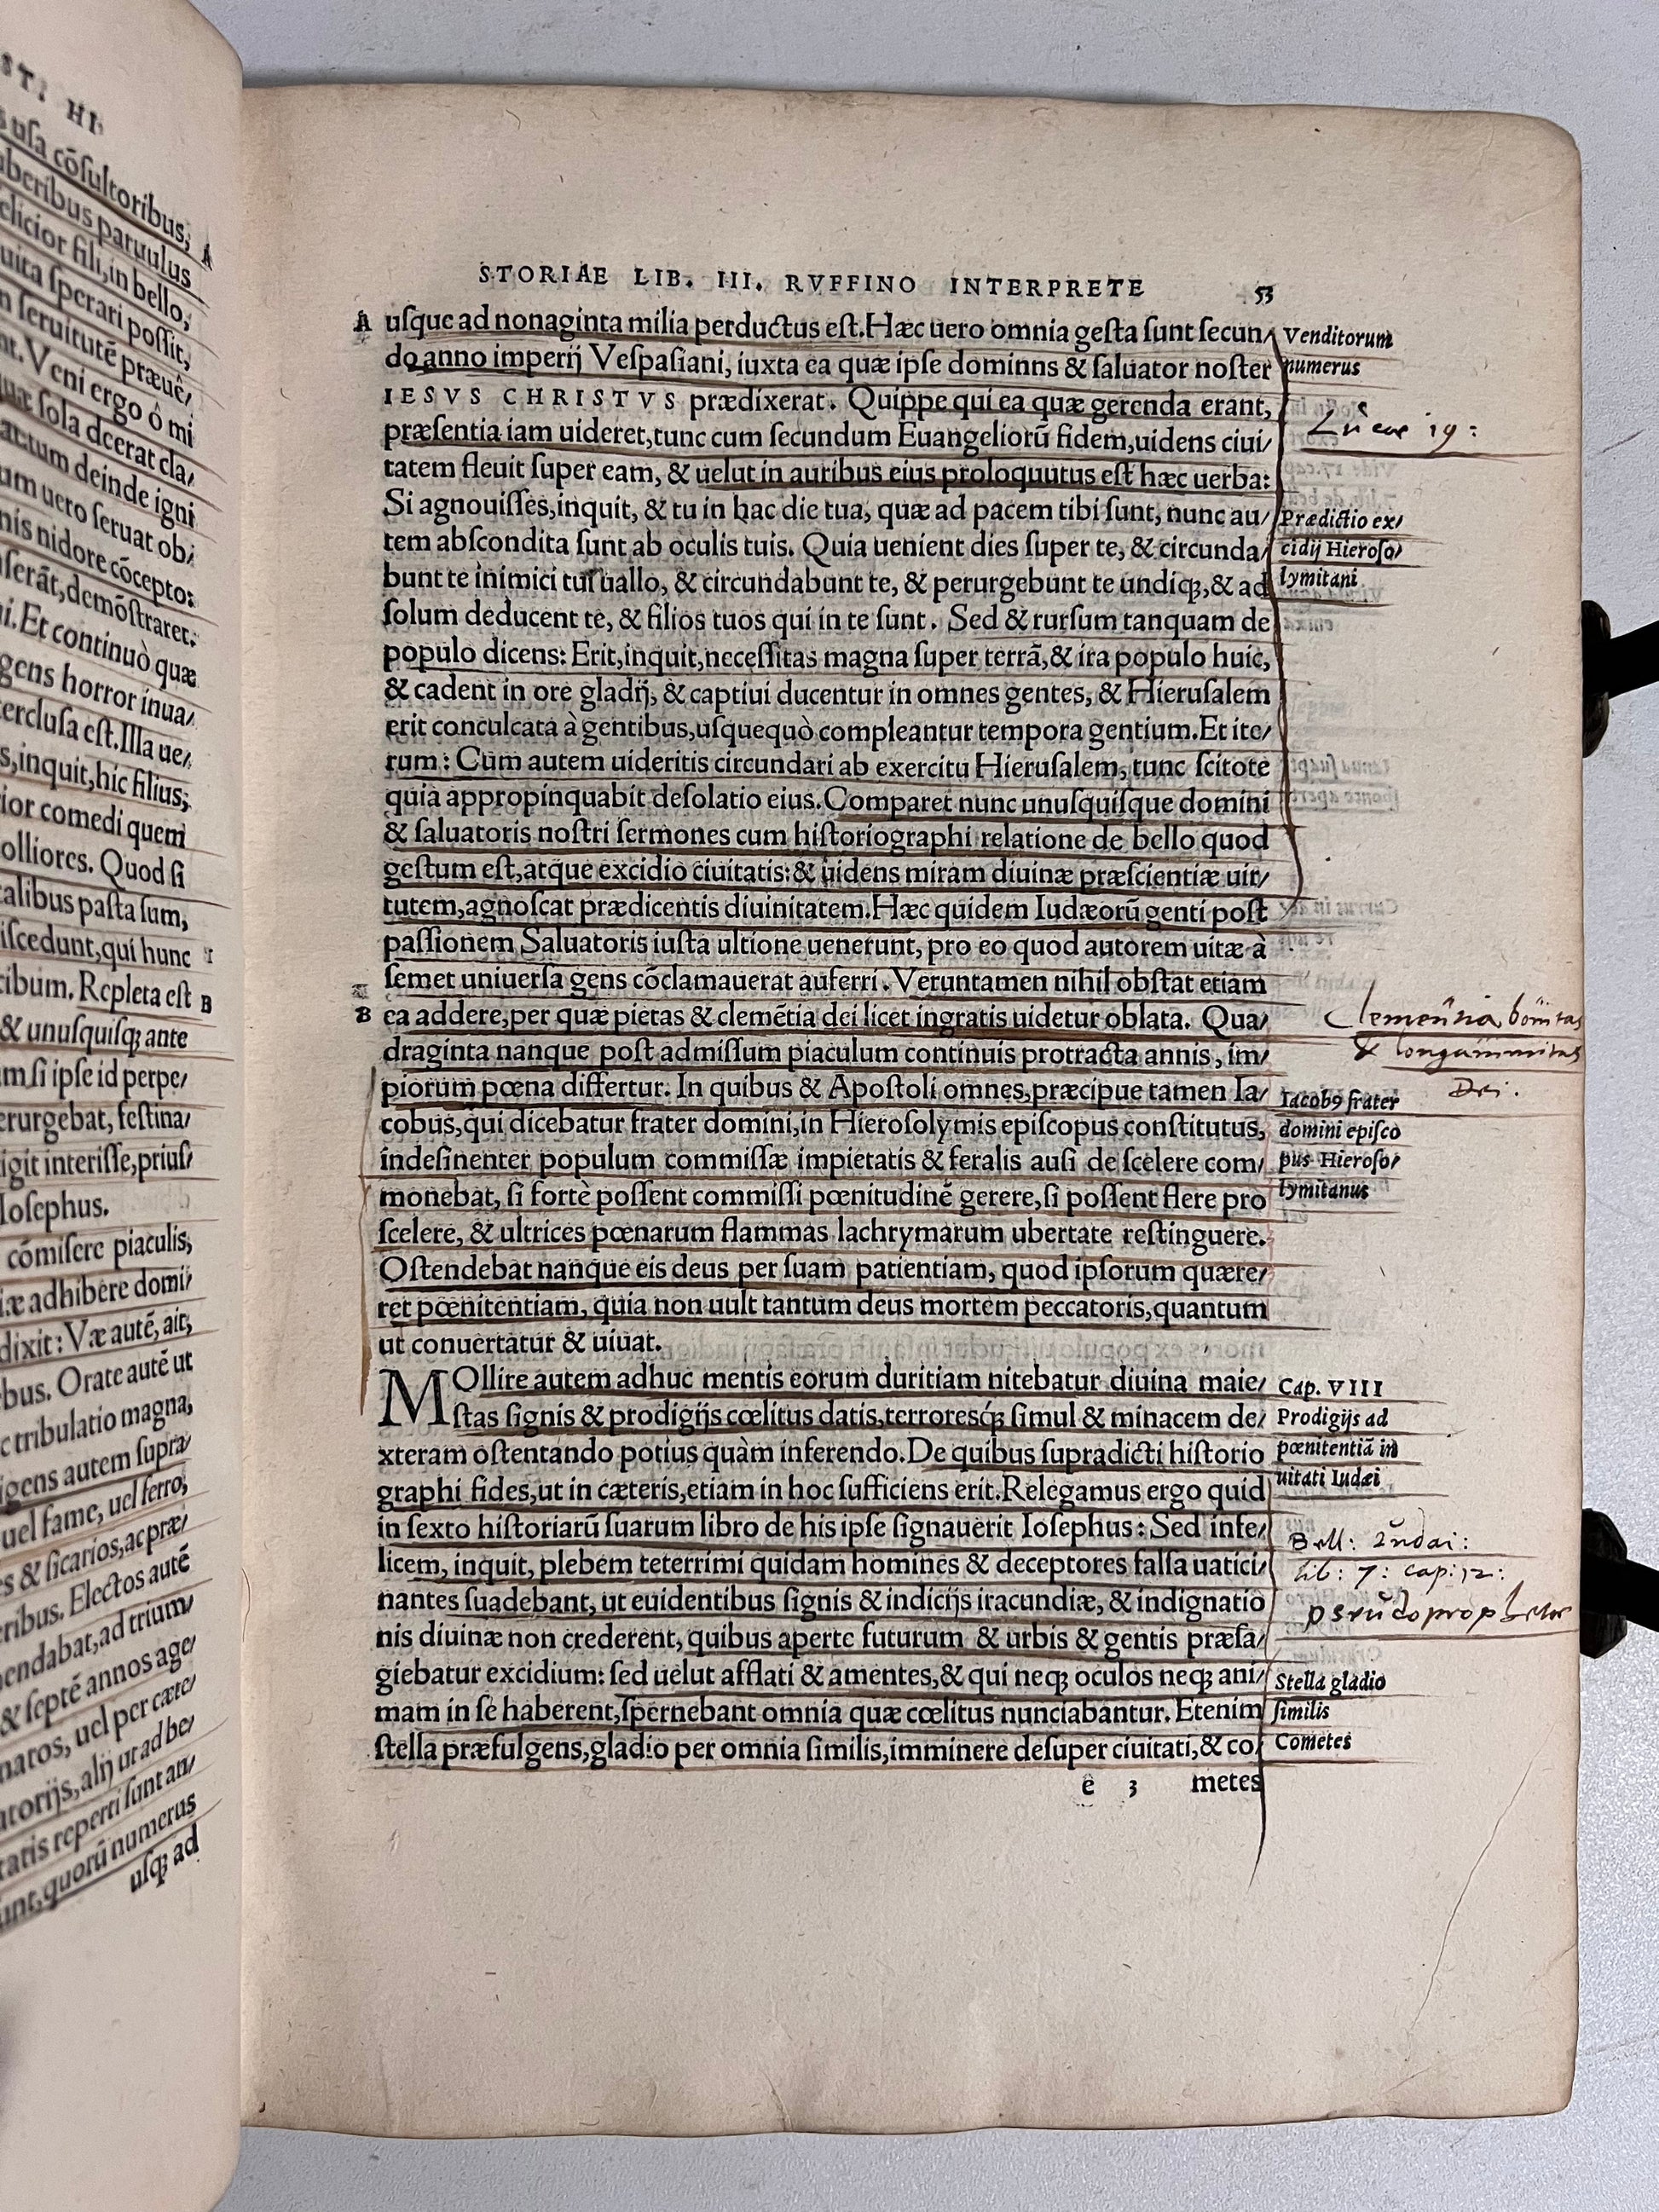 ST. HI
s uſa cõſultoribus,
uberibus paruulus
elicior fili, in bello,
uita ſperari poſſit,
n ſeruitutẽ præuẽ/
nt. Veni ergo ô mi
quæ ſola deerat cla/
actum deinde igni
um uero ſeruat ob/
nis nidore cõcepto:
aſerãt, demõſtraret:
ni. Et continuò quæ
gens horror inua/
terclusa eſt. Illa ue/
s, inquit, hic filius;
ior comedi quem
olliores. Quod ſi
talibus paſta ſum,
iſcedunt, qui hunc
cibum. Repleta eſt B
& unuſquiſq; ante
mſi ipſe id perpe/
erurgebat, feſtina/
igit interiſſe, priuſ/
Ioſephus.
cõmiſere piaculis,
iæ adhibere domi/
dixit: Væ autẽ, ait,
bus. Orate autẽ ut
c tribulatio magna,
igens autem ſupra
uel fame, uel ferro,
es & ſicarios, ac præ/
eribus. Electos autẽ
endabat, ad trium/
& ſeptẽ annos age/
natos, uel per cæte/
atorijs, alij ut ad be/
tatis reperti ſunt an/
unt, quorũ numerus
uſq; ad
STORIAE LIB. III. RVFFINO INTERPRETE 53
A uſque ad nonaginta milia perductus eſt. Hæc uero omnia geſta ſunt ſecun/
do anno imperij Veſpaſiani, iuxta ea quæ ipſe dominns & ſaluator noſter
IESVS CHRISTVS prædixerat. Quippe qui ea quæ gerenda erant,
præſentia iam uideret, tunc cum ſecundum Euangeliorũ fidem, uidens ciui/
tatem fleuit ſuper eam, & uelut in auribus eius proloquutus eſt hæc uerba:
Si agnouiſſes, inquit, & tu in hac die tua, quæ ad pacem tibi ſunt, nunc au/
tem abſcondita ſunt ab oculis tuis. Quia uenient dies ſuper te, & circunda/
bunt te inimici tui uallo, & circundabunt te, & perurgebunt te undiq;, & ad
ſolum deducent te, & filios tuos qui in te ſunt. Sed & rurſum tanquam de
populo dicens: Erit, inquit, neceſſitas magna ſuper terrã, & ira populo huic,
& cadent in ore gladij, & captiui ducentur in omnes gentes, & Hieruſalem
erit conculcata à gentibus, uſquequò compleantur tempora gentium. Et ite/
rum: Cum autem uideritis circundari ab exercitu Hieruſalem, tunc ſcitote
quia appropinquabit deſolatio eius. Comparet nunc unuſquiſque domini
& ſaluatoris noſtri ſermones cum hiſtoriographi relatione de bello quod
geſtum eſt, atque excidio ciuitatis: & uidens miram diuinæ præſcientiæ uir/
tutem, agnoſcat prædicentis diuinitatem. Hæc quidem Iudæorũ genti poſt
paſſionem Saluatoris iuſta ultione uenerunt, pro eo quod autorem uitæ à
ſemet uniuerſa gens cõclamauerat auferri. Veruntamen nihil obſtat etiam
B ea addere, per quæ pietas & clemẽtia dei licet ingratis uidetur oblata. Qua/
draginta nanque poſt admiſſum piaculum continuis protracta annis, im/
piorum pœna differtur. In quibus & Apoſtoli omnes, præcipue tamen Ia/
cobus, qui dicebatur frater domini, in Hieroſolymis epiſcopus conſtitutus,
indeſinenter populum commiſſæ impietatis & feralis auſi de ſcelere com/
monebat, ſi fortè poſſent commiſſi pœnitudinẽ gerere, ſi poſſent flere pro
ſcelere, & ultrices pœnarum flammas lachrymarum ubertate reſtinguere.
Oſtendebat nanque eis deus per ſuam patientiam, quod ipſorum quære/
ret pœnitentiam, quia non uult tantum deus mortem peccatoris, quantum
ut conuertatur & uiuat.
MOllire autem adhuc mentis eorum duritiam nitebatur diuina maie/
ſtas ſignis & prodigijs cœlitus datis, terroresq́; ſimul & minacem de/
xteram oſtentando potius quàm inferendo. De quibus ſupradicti hiſtorio
graphi fides, ut in cæteris, etiam in hoc ſufficiens erit. Relegamus ergo quid
in ſexto hiſtoriarũ ſuarum libro de his ipſe ſignauerit Ioſephus: Sed infe/
licem, inquit, plebem teterrimi quidam homines & deceptores falſa uatici/
nantes ſuadebant, ut euidentibus ſignis & indicijs iracundiæ, & indignatio
nis diuinæ non crederent, quibus aperte futurum & urbis & gentis præſa/
giebatur excidium: ſed uelut afflati & amentes, & qui neq; oculos neq; ani/
mam in ſe haberent, ſpernebant omnia quæ cœlitus nunciabantur. Etenim
ſtella præfulgens, gladio per omnia ſimilis, imminere deſuper ciuitati, & co/
e 3 metes
Venditorum
numerus
Lucae 19:
Prædictio ex/
cidij Hieroſo/
lymitani
Clementia, bonitas
& longanimitas
Dei.
Iacobꝯ frater
domini epiſco
pus Hieroſo/
lymitanus
Cap. VIII
Prodigijs ad
pœnitentiã in
uitati Iudæi
Bell: Iudai:
lib: 7: cap: 12:
pseudoprophetae
Stella gladio
ſimilis
Cometes